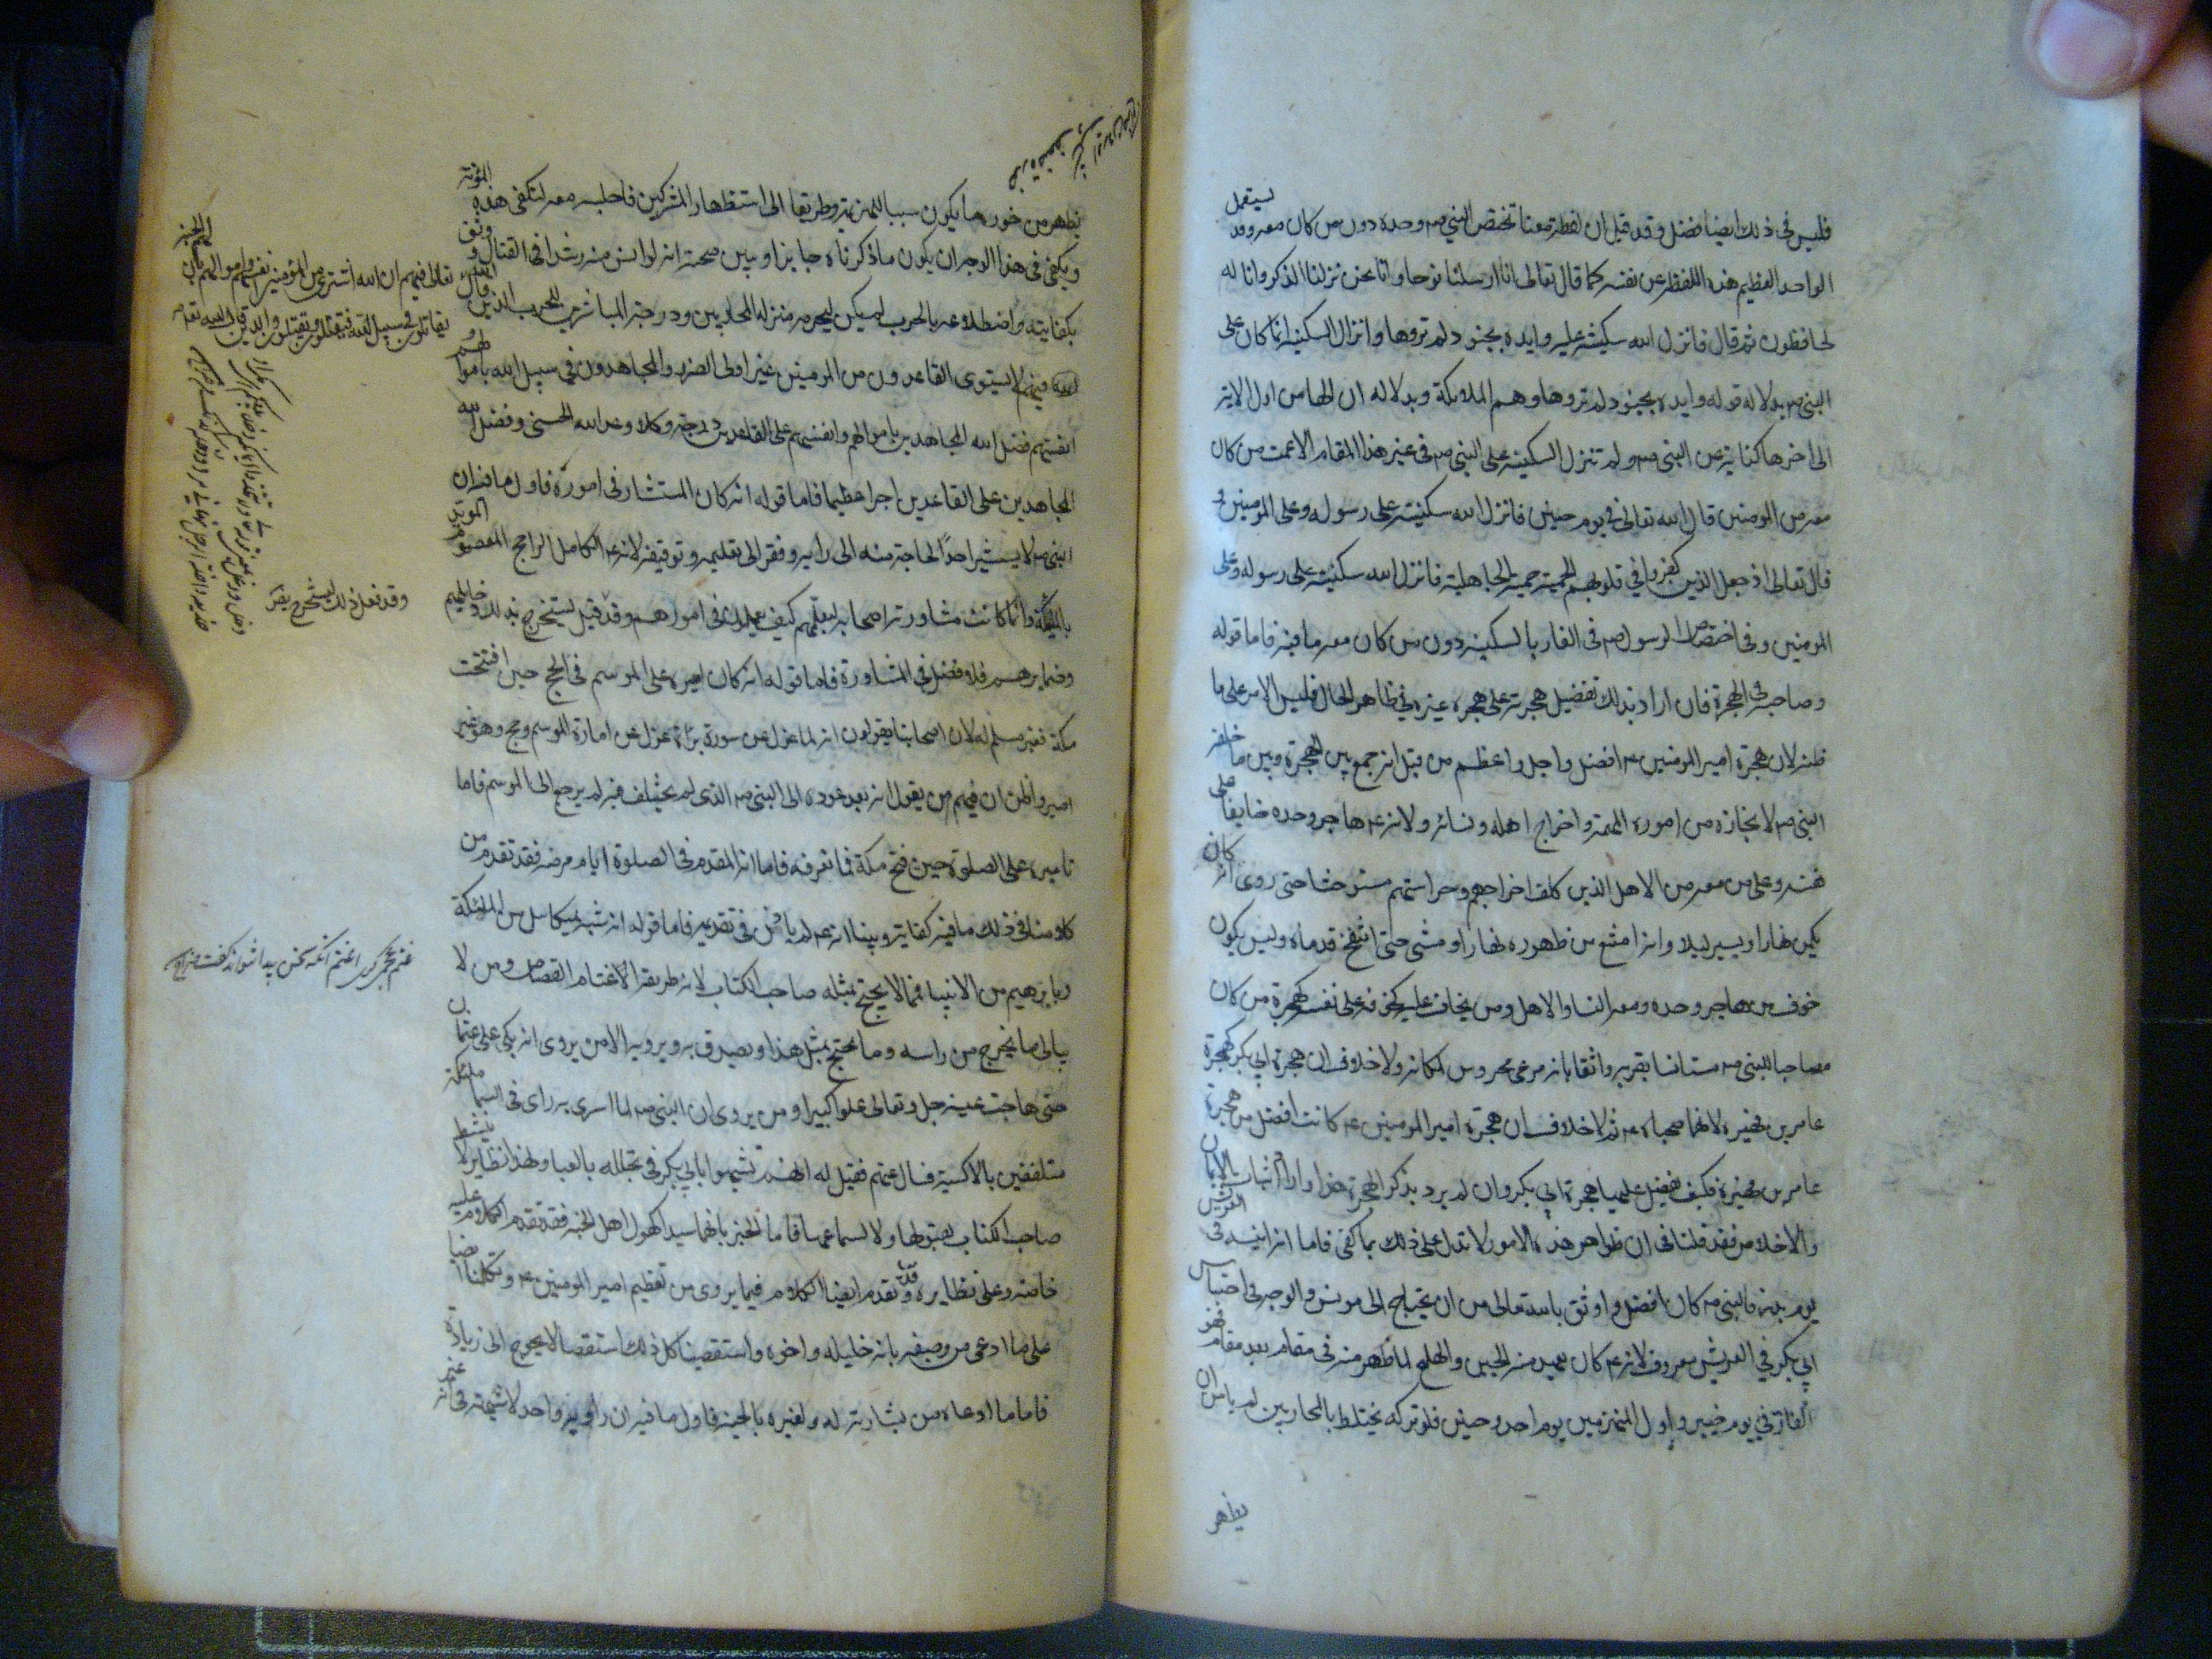 فليس في ذلك ايضا فضل وقد قيل ان لفظة معنا تختص النبي ص وحده دون من كان معه وقد يستعمل
الواحد العظيم هذه اللفظة عن نفسه كما قال تعالى انا ارسلنا نوحا وانا نحن نزلنا الذكر وانا له
لحافظون ثم قال فانزل الله سكينته عليه وايده بجنود لم تروها وانزال السكينة انما كان على
النبي ص بدلالة قوله وايده بجنود لم تروها وهم الملائكة وبدلالة ان الها من اول الاية
الى اخرها كناية عن النبي ص ولم تنزل السكينة على النبي ص في غير هذا المقام الا عمت من كان
معه من المومنين قال الله تعالى في يوم حنين فانزل الله سكينته على رسوله وعلى المومنين و
قال تعالى اذ جعل الذين كفروا في قلوبهم الحمية حمية الجاهلية فانزل الله سكينته على رسوله وعلى
المومنين وفي اختصاص الرسول ص في الغار بالسكينة دون من كان معه ما فيه فاما قوله
وصاحبه في الهجرة فان اراد بذلك تفضيل هجرته على هجرة غيره في ظاهر الحال فليس الامر على ما
ظنه لان هجرة امير المومنين ع افضل واجل واعظم من قبل انه جمع بين الهجرة وبين ما خلفه
النبي ص لانجازه من اموره المهمة واخراج اهله ونسائه ولانه ع هاجر وحده خايفا على
نفسه وعلى من معه من الاهل الذين كلف اخراجهم وحراستهم مستوحشا حتى روى انه كان
يكمن نهارا ويسير ليلا وانه امتنع من ظهوره نهارا ومشى حتى انتفخ قدماه وليس يكون
خوف من هاجر وحده ومعه النسا والاهل ومن يخاف عليه كخوفه على نفسه كهجرة من كان
مصاحبا للنبي ص مستانسا بقربه واثقا بانه مرعى محروس لمكانه ولا خلاف ان هجرة ابي بكر كهجرة
عامر بن فهيرة لانهما صحباه ع ثم لا خلاف ان هجرة امير المومنين ع كانت افضل من هجرة
عامر بن فهيرة فكيف تفضل عليها هجرة ابي بكر وان لم يرد بذكر الهجرة هذا واراد اثبات الايمان
والاخلاص فقد قلنا في ان ظواهر هذه الامور لا تدل على ذلك بما كفى فاما انه انيسه في العريش
يوم بدر فالنبي ص كان افضل واوثق بالله تعالى من ان يحتاج الى مونس والوجه في احتباس
ابي بكر في العريش معروف لانه ع كان يعهد منه الجبن والهلع لما ظهر منه في مقام بعد مقام نحو
الفاره في يوم خيبر واول المنهزمين يوم احد وحنين فلو تركه يختلط بالمحاربين لم يامن ان
يظهر
يظهر من خوره ما يكون سببا للهزيمة وطريقا الى استظهار المشركين فاجلسه معه لتكفى هذه المؤنة
ويكفي في هذا الوجه ان يكون ما ذكرناه جايزا ويبين صحته انه لو انس منه رشدا في القتال و وثق
بكفايته واضطلاعه بالحرب لم يكن ليحرمه منزلة المحاربين ودرجة المباشرين للحرب الذين قال
الله فيهم لا يستوى القاعدون من المومنين غير اولى الضرر والمجاهدون في سبيل الله باموالهم و
انفسهم فضل الله المجاهدين باموالهم وانفسهم على القاعدين درجة وكلا وعد الله الحسنى وفضل الله
المجاهدين على القاعدين اجرا عظيما فاما قوله انه كان المستشار في اموره فاول ما فيه ان
النبي ص لا يستشير احدا لحاجة منه الى رايه وفقر الى تعليمه وتوقيفه لانه ع الكامل الراجح المعصوم المويد
بالملئكة وانما كانت مشاورته اصحابه ليعلمهم كيف يعملون في امورهم وقد قيل ليستخرج بذلك دخايلهم
وضمايرهم فلا فضل في المشاورة فاما قوله انه كان اميره على الموسم في الحج حين افتتحت
مكة فغير مسلم له لان اصحابنا يقولون انه لما عزل عن سورة براة عزل عن امارة الموسم وحج وهو غير
امير واظن ان فيهم من يقول انه بعد عوده الى النبي ص الذى لم يختلف فيه لم يرجع الى الموسم فاما
تاميره على الصلوة حين فتح مكة فما نعرفه فاما انه المقدم في الصلوة ايام مرضه فقد تقدم من
كلامنا في ذلك ما فيه كفاية وبينا انه ع لم ياذن في تقديمه فاما قوله انه شبه بميكائيل من الملئكة
وبابرهيم من الانبيا فمما لا يحتج بمثله صاحب الكتاب لانه طريقة الاغتام القصاص ومن لا
يبالى ما يخرج من راسه وما يحتج بمثل هذا ويصدق به ويرويه الا من يروى انه بكى على عثمان
حتى هاجت عينه جل وتعالى علوا كبيرا ومن يروى ان النبي ص لما اسرى به راى في السما ملئكة
متلففين بالاكسية فسال عنهم فقيل له انهم تشبهوا بابي بكر في تخلله بالعبا ولهذا نظاير لا ينشط
صاحب الكتاب لقبولها ولا لسماعها فاما الخبر بانهما سيدا كهول اهل الجنة فقد تقدم الكلام عليه
خاصة وعلى نظايره وقد تقدم ايضا الكلام فيما يروى من تعظيم امير المومنين ع وتكلمنا ايضا
على ما ادعى من وصفه بانه خليله واخوه واستقصينا كل ذلك استقصا لا يحوج الى زيادة
فاما ما ادعاه من بشارته له ولغيره بالجنة فاول ما فيه ان راويه واحد لا شبهة في انه غير
تعالى فيهم ان الله اشترى من المؤمنين انفسهم واموالهم بان لهم الجنة
يقاتلون في سبيل الله فيقتلون ويقتلون والذين قال الله تعالى
وقد فعل ذلك ليستخرج بقر